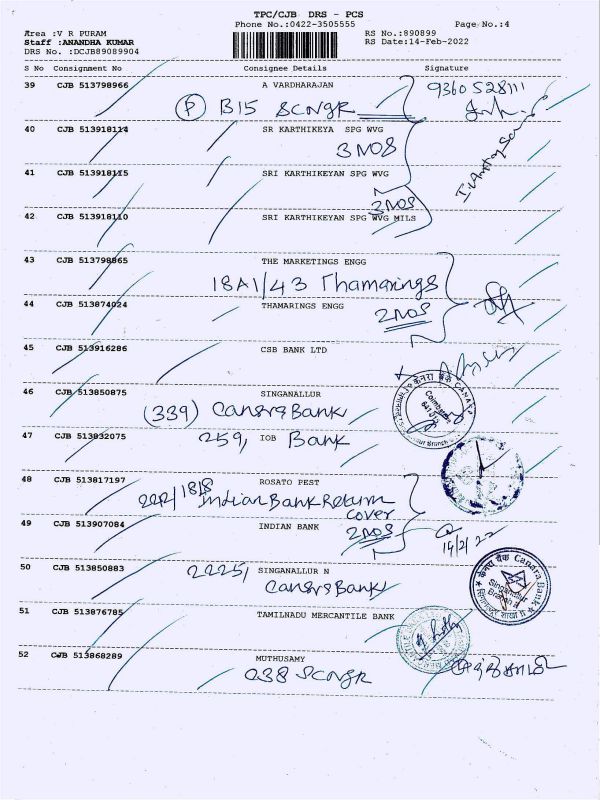 TPC/CJB DRS - PCS
Phone No.:0422-3505555 Page No.:4
Area :V R PURAM
Staff :ANANDHA KUMAR
DRS No. :DCJB89089904
RS No.:890899
RS Date:14-Feb-2022
S No Consignment No Consignee Details Signature
39 CJB 513798966 A VARDHARAJAN 9360528111
P B15 SCNGR
40 CJB 513918114 SR KARTHIKEYA SPG WVG
3 NOS
41 CJB 513918115 SRI KARTHIKEYAN SPG WVG
3 NOS
42 CJB 513918110 SRI KARTHIKEYAN SPG WVG MILS
43 CJB 513798865 THE MARKETINGS ENGG
18A1/43 Thamarings
44 CJB 513874024 THAMARINGS ENGG
2 NOS
45 CJB 513916286 CSB BANK LTD
46 CJB 513850875 SINGANALLUR
(339) Canara Bank
47 CJB 513832075 259, IOB Bank
48 CJB 513817197 ROSATO PEST
Indian Bank Return
cover
49 CJB 513907084 INDIAN BANK 2 NOS
14/2/22
50 CJB 513850883 2225, SINGANALLUR N
Canara Bank
केनरा बैंक Canara Bank
Singanallur
Branch II
51 CJB 513876785 TAMILNADU MERCANTILE BANK
52 CJB 513868289 MUTHUSAMY
038 SCNGR